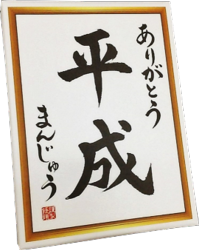 ありがとう
平成
まんじゅう